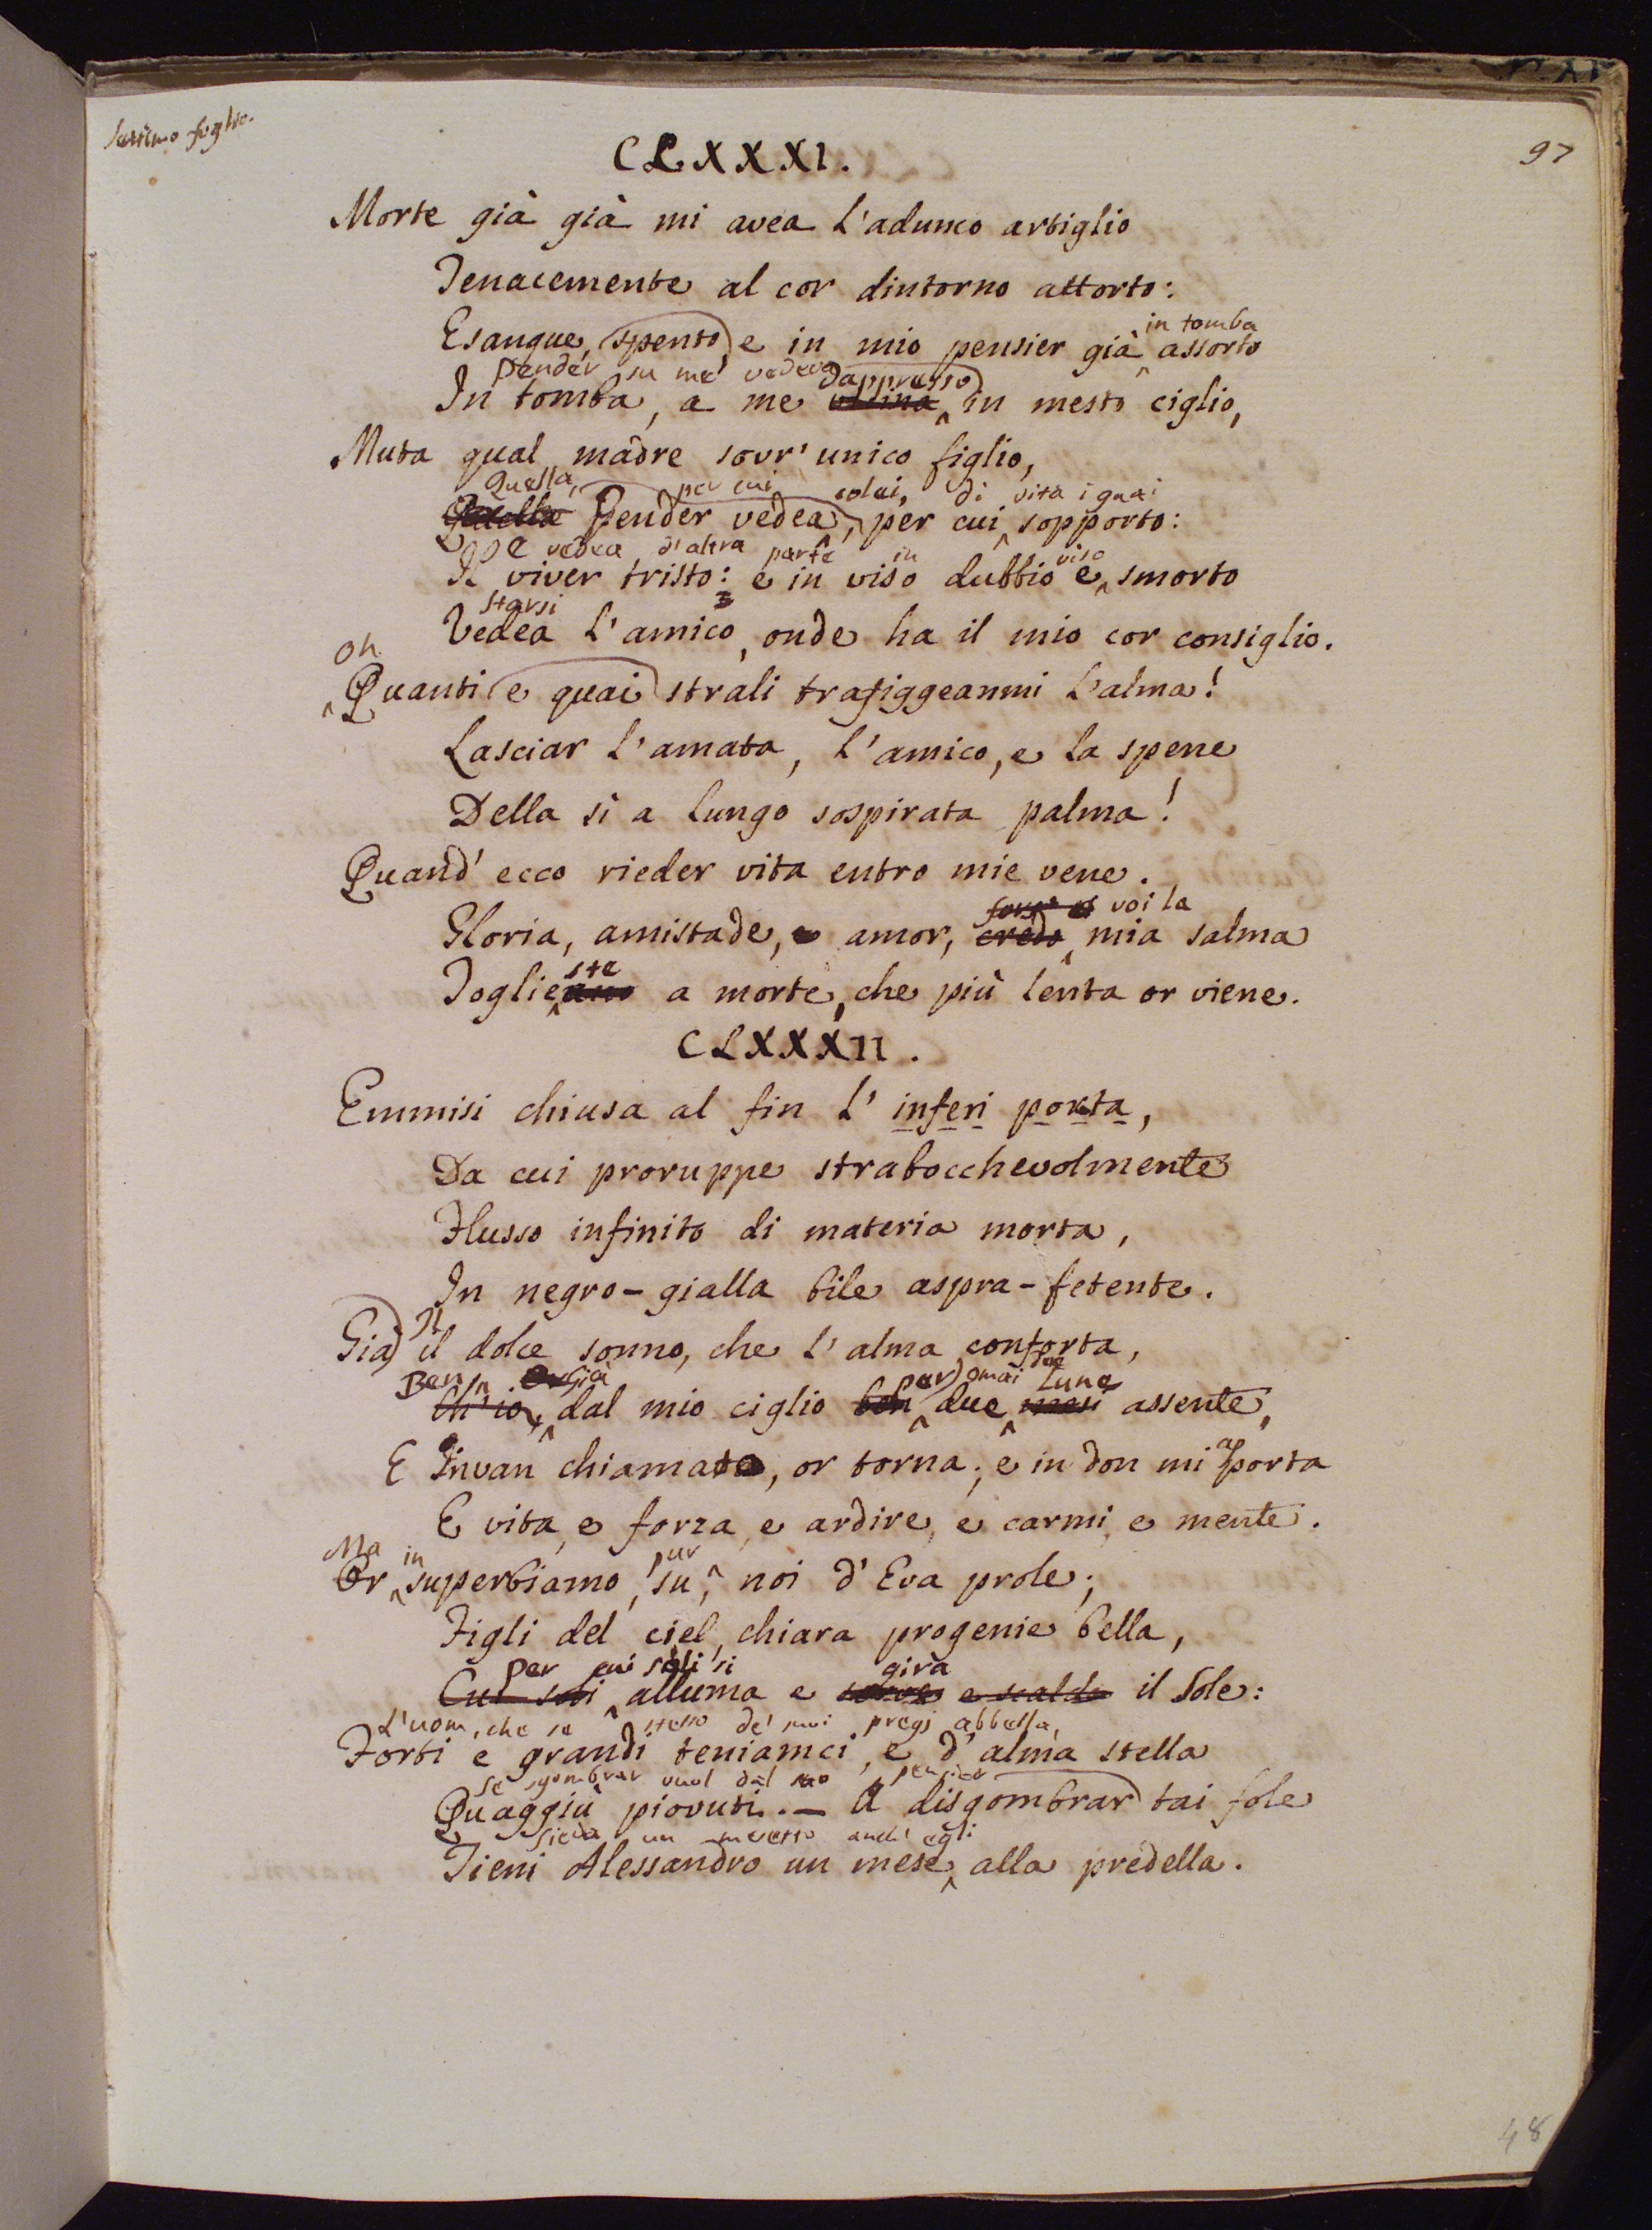 97
CLXXXI.
Morte già già mi avea l'adunco artiglio
Tenacemente al cor dintorno attorto:
in tomba
Esangue, spento, e in mio pensier già assorto
Pender su me vedeva dappresso
In tomba, a me vicina in mesto ciglio,
Muta qual madre sovr'unico figlio,
Quella, per cui colei, di vita i guai
Quella Pender vedea, per cui sopporto:
E vedea d'altra parte in viso
Il viver tristo: e in viso dubbio e smorto
Starsi
Vedea l'amico, onde ha il mio cor consiglio.
Oh
Quanti e quai strali trafiggeanmi l'alma!
Lasciar l'amata, l'amico, e la spene
Della sì a lungo sospirata palma!
Quand' ecco rieder vita entro mie vene.
voi la
Gloria, amistade, e amor, credo mia salma
ste
Toglieano a morte, che più lenta or viene.
CLXXXII.
Emmisi chiusa al fin l' inferi porta,
Da cui proruppe strabocchevolmente
Flusso infinito di materia morta,
In negro-gialla bile aspra-fetente.
Il
Già il dolce sonno, che l'alma conforta,
Ben Già per omai Lune
Ch'io, dal mio ciglio ben due mesi assente,
E Invan chiamato, or torna; e in don mi apporta
E vita, e forza, e ardire, e carmi, e mente.
Ma in pur
Or superbiamo, su, noi d'Eva prole;
Figli del ciel, chiara progenie bella,
Per cui soli si gira
Cui soli alluma e e scalda il Sole:
L'uom, che se stesso de' suoi pregj abbella,
Forti e grandi teniamci, e d'alma stella
Se sgombrar vuol dal pensier
Quaggiù piovuti. — A disgombrar tai fole
Sieda un mesetto anch' egli
Tieni Alessandro un mese alla predella.
48